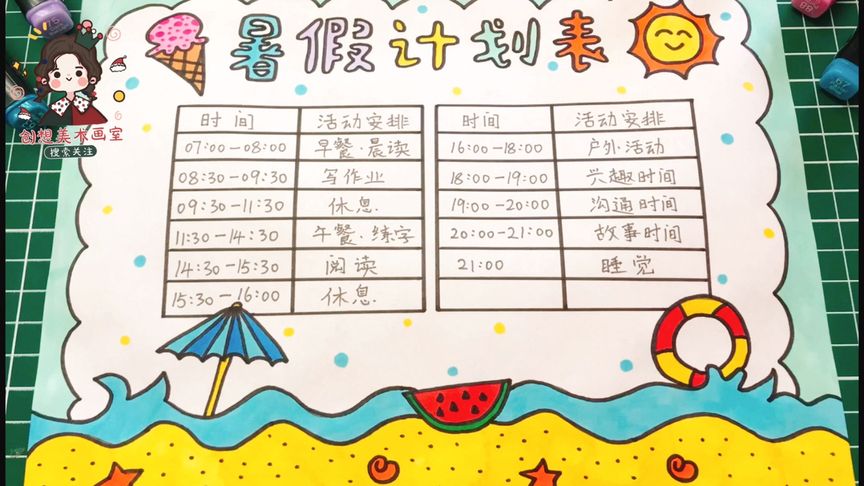 暑假计划表
创想美术画室
搜索关注
时间 活动安排
07:00-08:00 早餐·晨读
08:30-09:30 写作业
09:30-11:30 休息
11:30-14:30 午餐·练字
14:30-15:30 阅读
15:30-16:00 休息
时间 活动安排
16:00-18:00 户外活动
18:00-19:00 兴趣时间
19:00-20:00 沟通时间
20:00-21:00 故事时间
21:00 睡觉